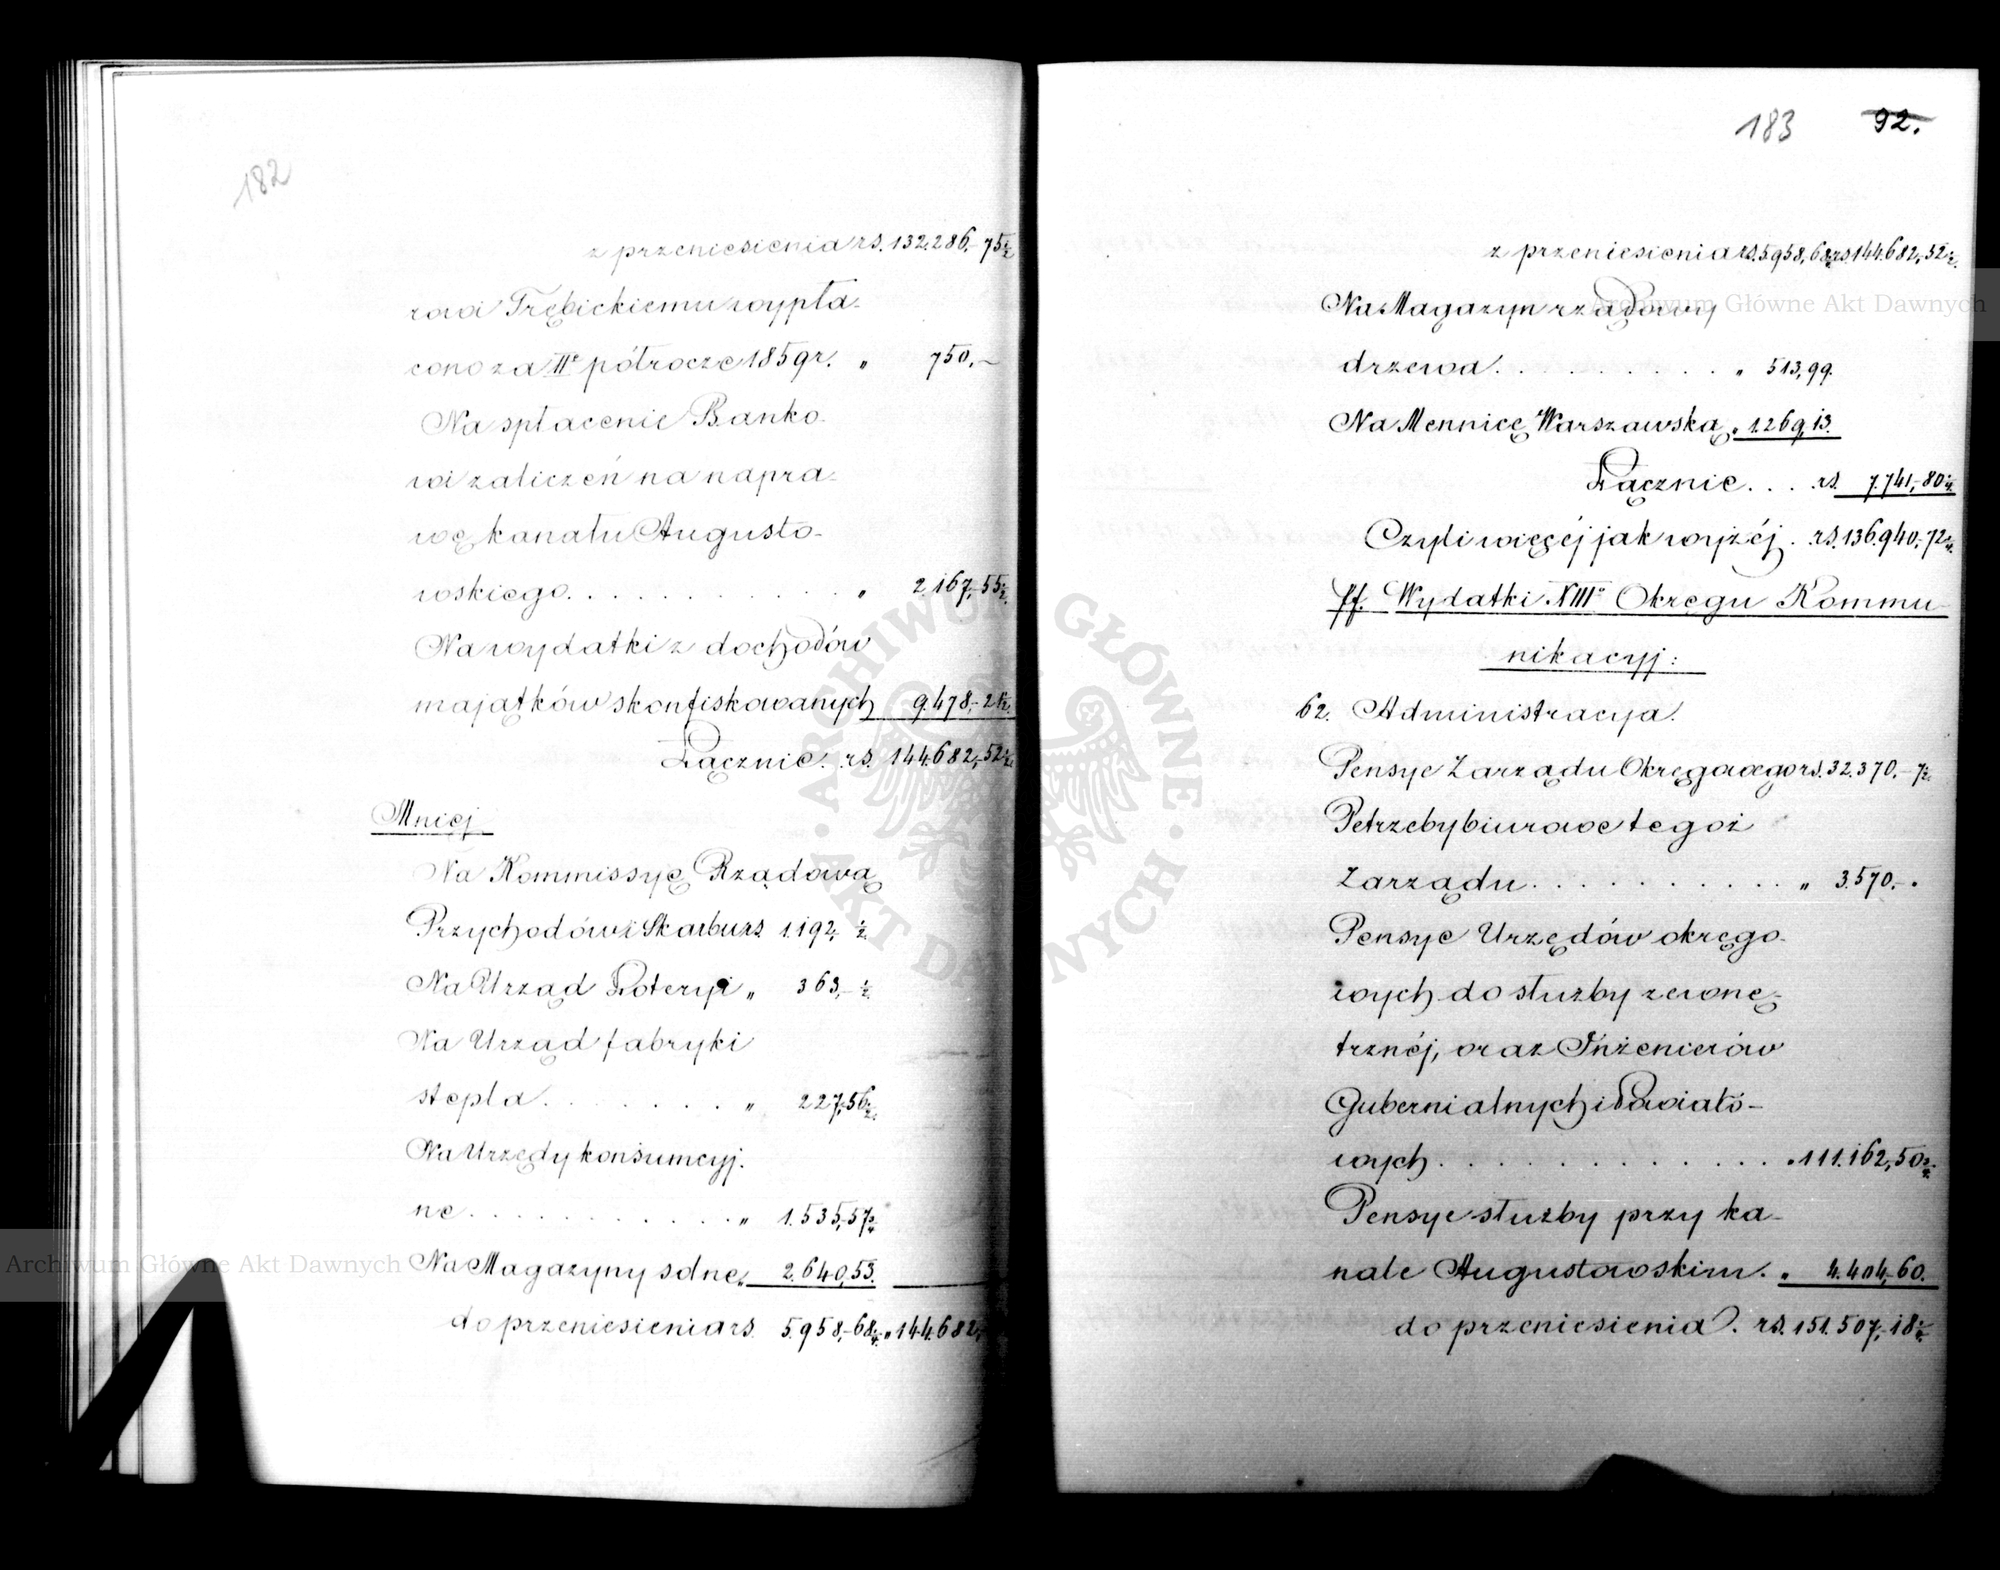 182
z przeniesienia rs. 132.286,-75½
rowi Trębickiemu wypła-
cono za IIe półrocze 1859r. „ 750,-
Na spłacenie Banko-
wi zaliczeń na napra-
wę kanału Augusto-
wskiego. . . . . . . . . . . „ 2.167,-55½
Na wydatki z dochodów
majątków skonfiskowanych 9.478,-21½
Łącznie. rs. 144.682,-52½
Mniej
Na Kommissyę Rządową
Przychodów i Skarbu rs. 1.192,-½
Na Urząd Loteryi „ 363,-½
Na Urząd fabryki
stępla. . . . . . . „ 227,-56½
Na Urzędy konsumcyj-
ne . . . . . . . . . . „ 1.535,-57¾
Na Magazyny solne „ 2.640,53.
do przeniesienia rs. 5.958,-68¼ „ 144.682,-
183 92.
z przeniesienia rs. 5958,68¼ rs. 144.682,-52½
Na Magazyn rządowy
drzewa. . . . . . . . . „ 513,99.
Na Mennicę Warszawską „ 1.269,13.
Łącznie. . . . rs. 7.741,-80¼
Czyli więcéj jak wyżéj . rs. 136.940,-72¼
ff. Wydatki XIIIo Okręgu Kommu-
nikacyj:
62. Administracya.
Pensye Zarządu Okręgowego rs. 32.370,-7½
Potrzeby biurowe tegoż
Zarządu . . . . . . . . . . „ 3.570,-.
Pensye Urzędów okręgo-
wych do służby zewnę-
trznéj, oraz Inżenierów
Gubernialnych i Powiato-
wych . . . . . . . . . . . „ 111.162,50¾
Pensye służby przy ka-
nale Augustowskim. „ 4.404,-60.
do przeniesienia. rs. 151.507,-18¼
Archiwum Główne Akt Dawnych
Archiwum Główne Akt Dawnych
ARCHIWUM GŁÓWNE · AKT DAWNYCH ·